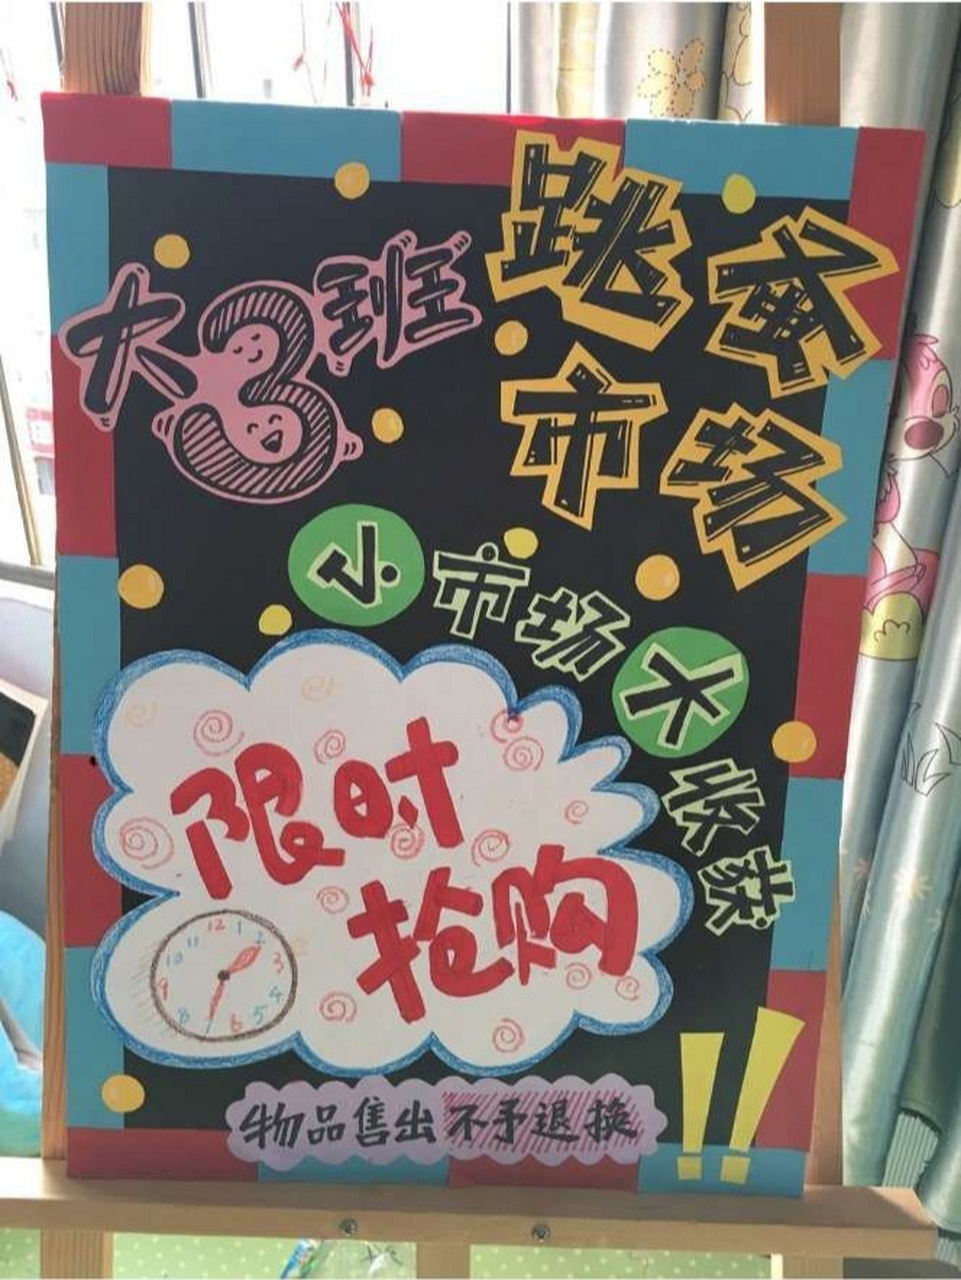 大3班
跳蚤
市场
小市场大收获
限时
抢购
12
1
2
3
4
5
6
8
9
10
11
物品售出不予退换
!!